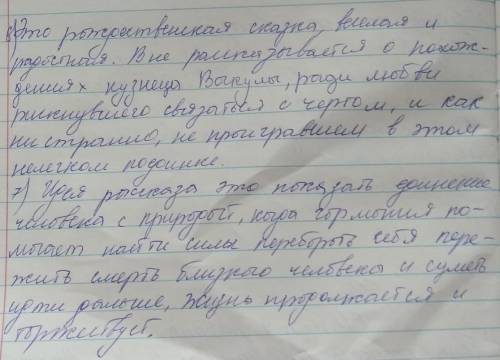 6) Это рождественская сказка, веселая и
радостная. В не рассказывается о похож-
дениях кузнеца Вакулы, ради любви
рискнувшего связаться с чертом, и как
ни странно, не проигравшем в этом
нелегком поединке.
7) Идея рассказа это показать единение
человека с природой, когда гармония по-
могает найти силы перебороть себя пере-
жить смерть близкого человека и суметь
идти дальше, жизнь продолжается и
торжествует.